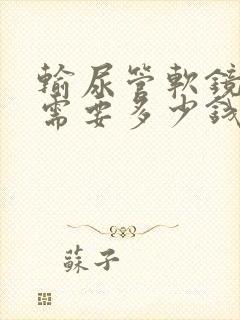 輸尿管軟鏡
需要多少錢
蘇子